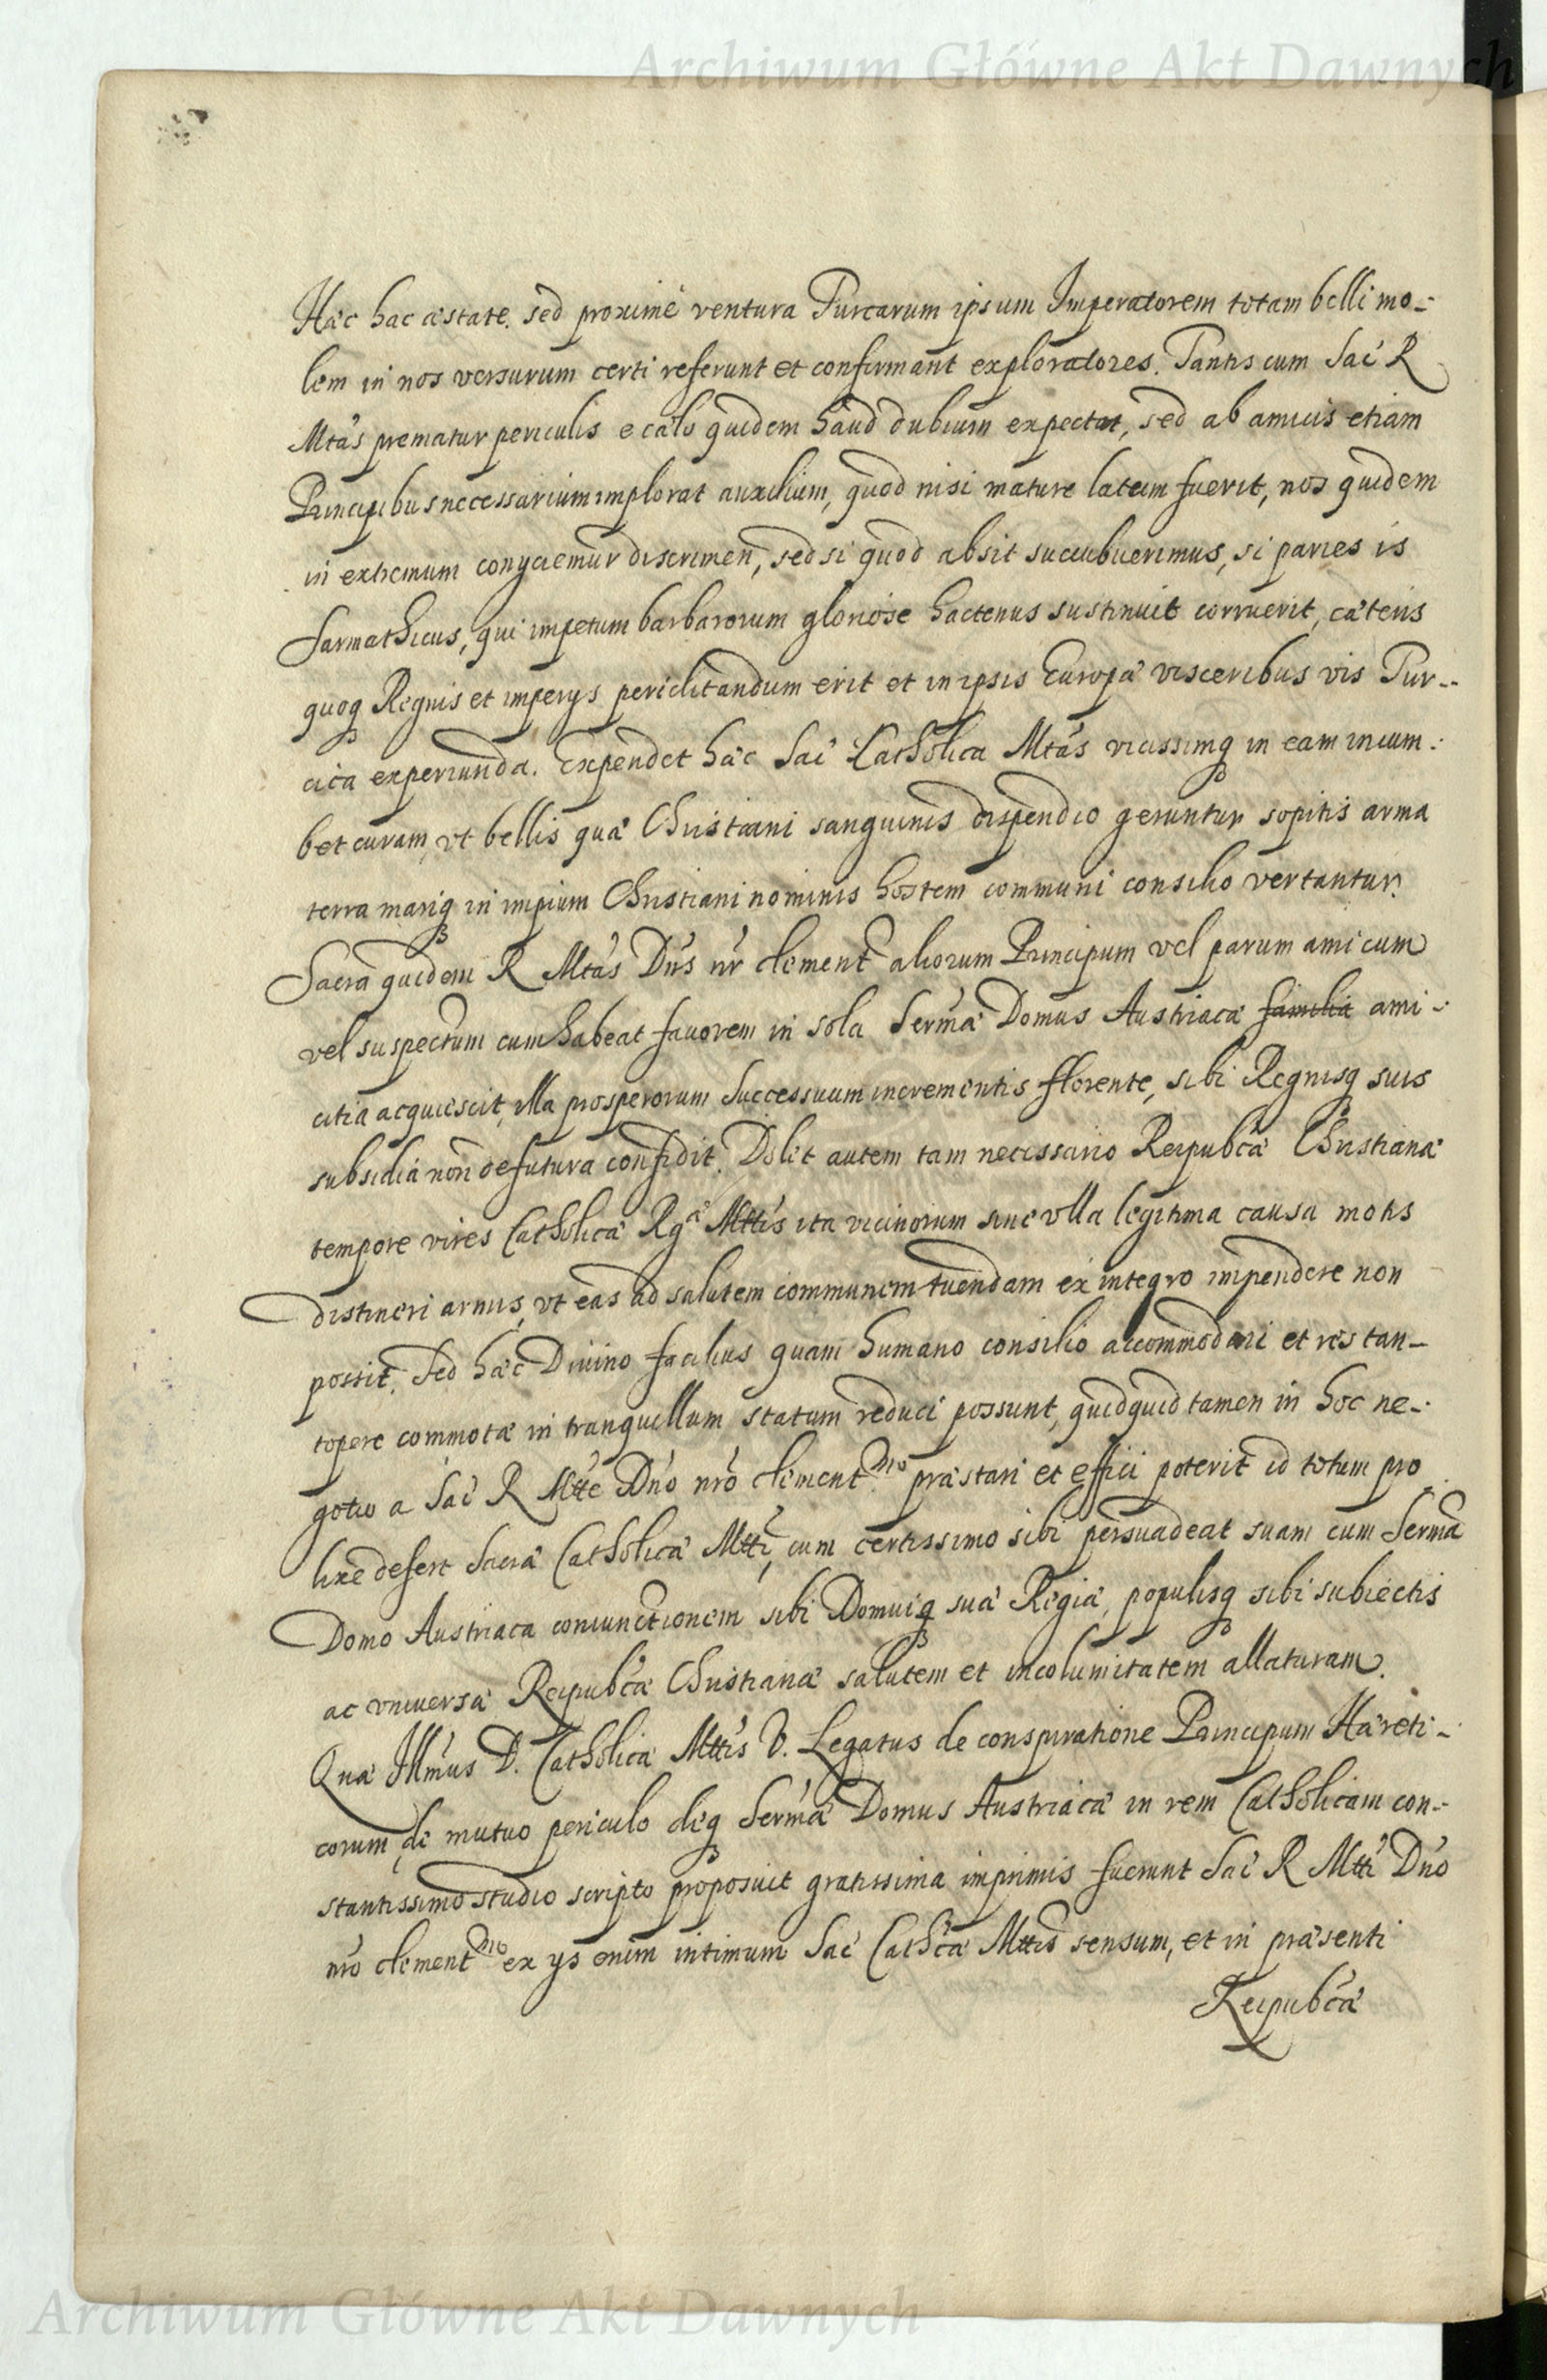 Archiwum Główne Akt Dawnych
Hæc hac æstate. sed proximè ventura Turcarum ipsum Imperatorem totam belli mo-
lem in nos versurum certi referunt et confirmant exploratores. Tantis cum Sac R
Mtas prematur periculis e cælo quidem haud dubium expectat, sed ab amicis etiam
Principibus necessarium implorat auxilium, quod nisi mature latum fuerit, nos quidem
in extremum conyciemur discrimen, sed si quod absit succubuerimus, si paries is
Sarmathicus, qui impetum barbarorum gloriose hactenus sustinuit corruerit, cæteris
quoq Regnis et imperys periclitandum erit et in ipsis Europæ visceribus vis Tur-
cica experiunda. Expendet hæc Sac Catholica Mtas vicissimq in eam incum-
bet curam, vt bellis quæ Christiani sanguinis dispendio geruntur sopitis arma
terra mariq in impium Christiani nominis hostem communi consilio vertantur.
Sacra quidem R Mtas Dns nr clement aliorum Principum vel parum amicum
vel suspectum cum habeat fauorem in sola Sermæ Domus Austriacæ familia ami-
citia acquiescit, illa prosperorum successuum incrementis florente, sibi Regnisq suis
subsidia non defutura confidit. Dolet autem tam necessario Reipubcæ Christianæ
tempore vires Catholicæ Rgæ Mttis ita vicinorum sine vlla legitima causa motis
distineri armis, vt eas ad salutem communem tuendam ex integro impendere non
possit. Sed hæc Diuino facilius quam humano consilio accommodari et res tan-
topere commotæ in tranquillum statum reduci possunt, quidquid tamen in hoc ne-
gotio a Sac R Mtte Dno nro clement mo præstari et effici poterit id totum pro
lixe defert Sacræ Catholicæ Mtti, cum certissimo sibi persuadeat suam cum Serma
Domo Austriaca coniunctionem sibi Domuiq suæ Regiæ, populisq sibi subiectis
ac vniuersæ Reipubcæ Christianæ salutem et incolumitatem allaturam.
Quæ Illmus D. Catholicæ Mttis V. Legatus de conspiratione Principum Hæreti-
corum, de mutuo periculo deq Sermæ Domus Austriacæ in rem Catholicam con-
stantissimo studio scripto proposuit gratissima imprimis fuerunt Sac R Mtti Dno
nro clement mo ex ys enim intimum Sac Cathcæ Mttis sensum, et in præsenti
Reipubcæ
Archiwum Główne Akt Dawnych